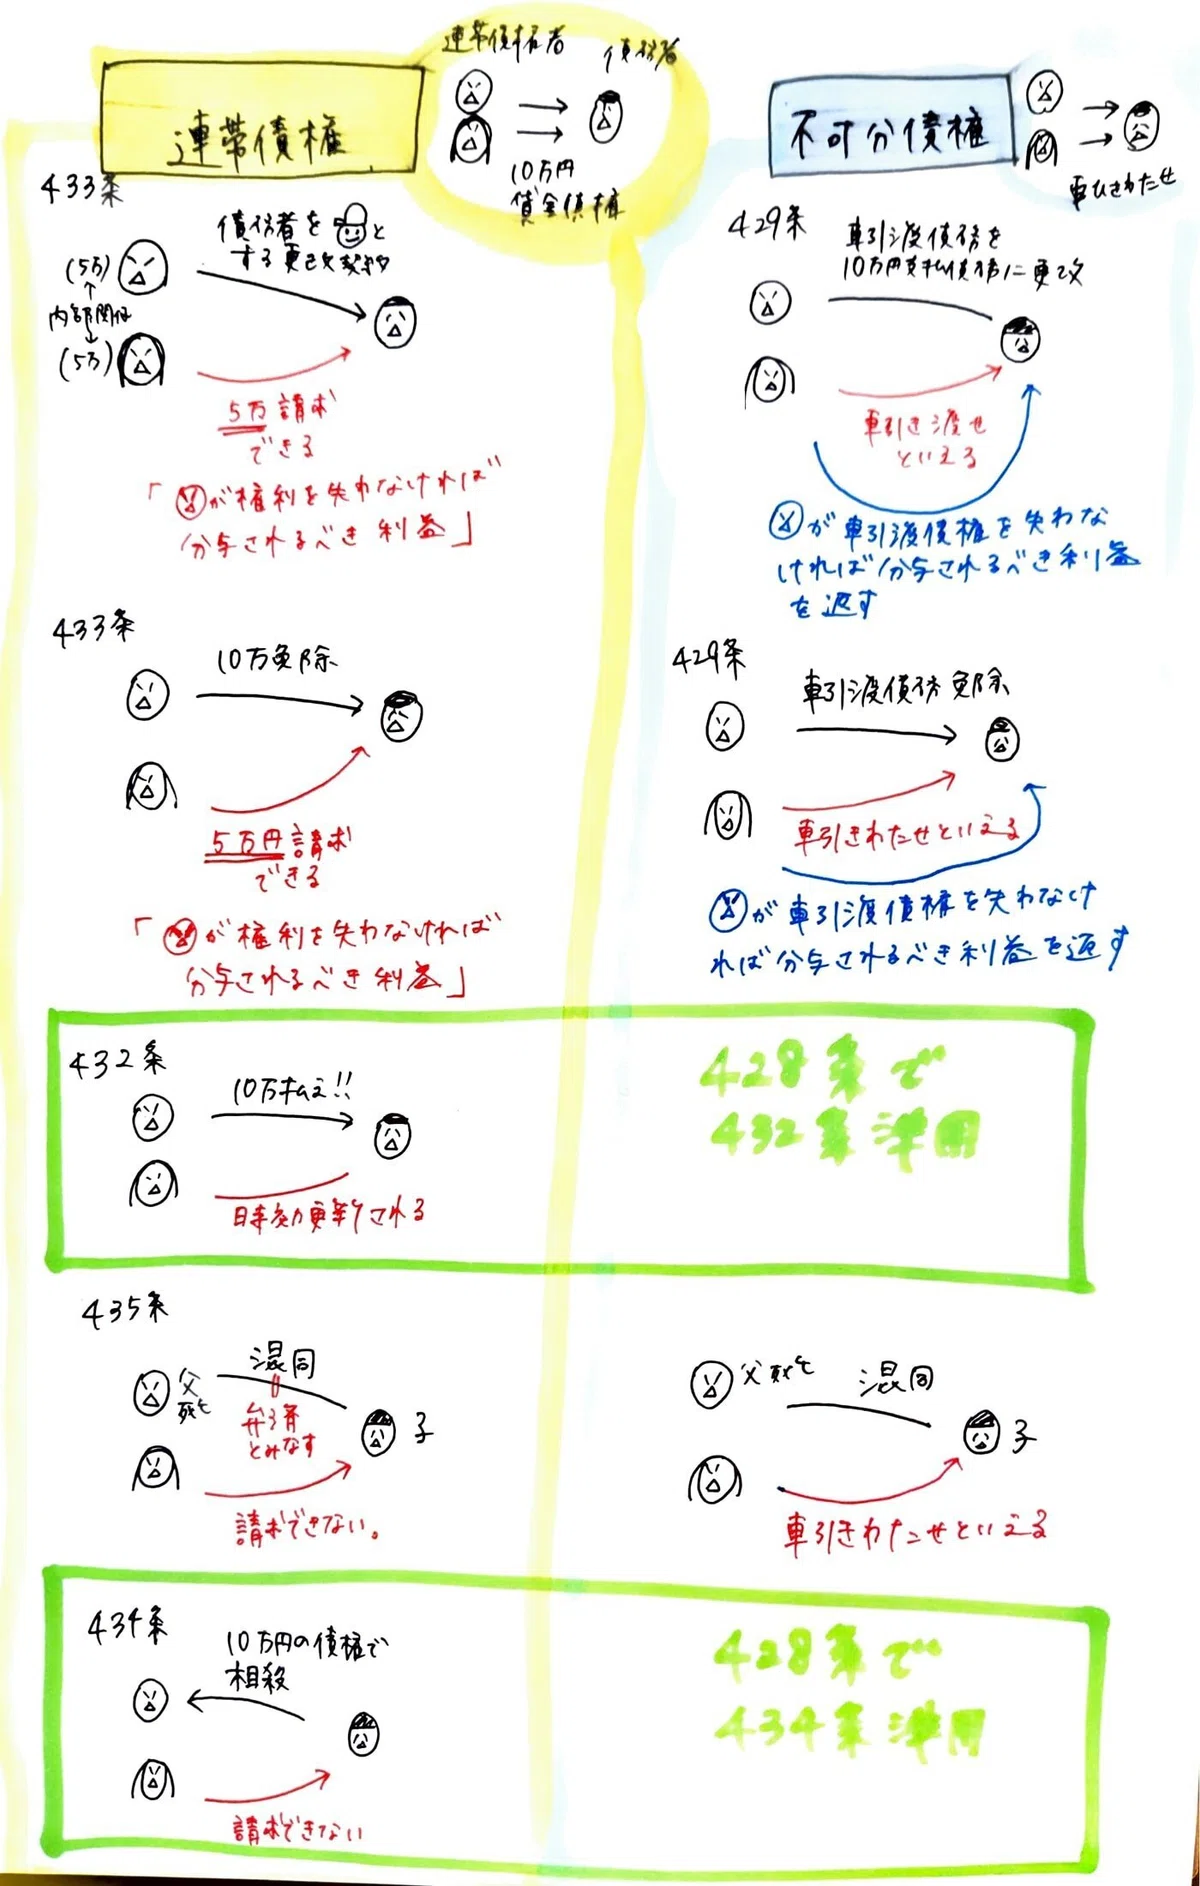 連帯債権
連帯債権者
債務者
10万円
貸金債権
433条
債務者を
と
する更改契約
(5万)
内部関係
(5万)
5万請求
できる
「
が権利を失わなければ
分与されるべき利益」
433条
10万免除
5万円請求
できる
「
が権利を失わなければ
分与されるべき利益」
432条
10万払え!!
時効更新される
435条
父
死亡
混同
弁済
とみなす
子
請求できない。
434条
10万円の債権で
相殺
請求できない
不可分債権
車ひきわたせ
429条
車引渡債務を
10万円支払債務に更改
車引き渡せ
といえる
が車引渡債権を失わな
ければ分与されるべき利益
を返す
429条
車引渡債務免除
車引きわたせといえる
が車引渡債権を失わなけ
れば分与されるべき利益を返す
428条で
432条準用
父死亡
混同
子
車引きわたせといえる
428条で
434条準用